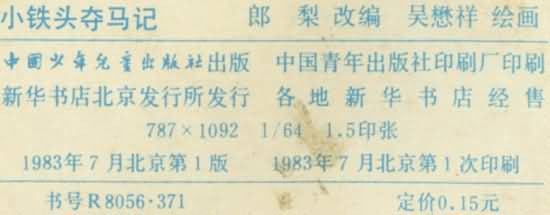 小铁头夺马记 郎 梨 改编 吴懋祥 绘画
中国少年儿童出版社出版 中国青年出版社印刷厂印刷
新华书店北京发行所发行 各地新华书店经售
787×1092 1/64 1.5印张
1983年7月北京第1版 1983年7月北京第1次印刷
书号R8056·371 定价0.15元